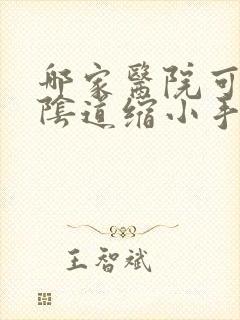 哪家醫院可
陰道缩小手
王智斌